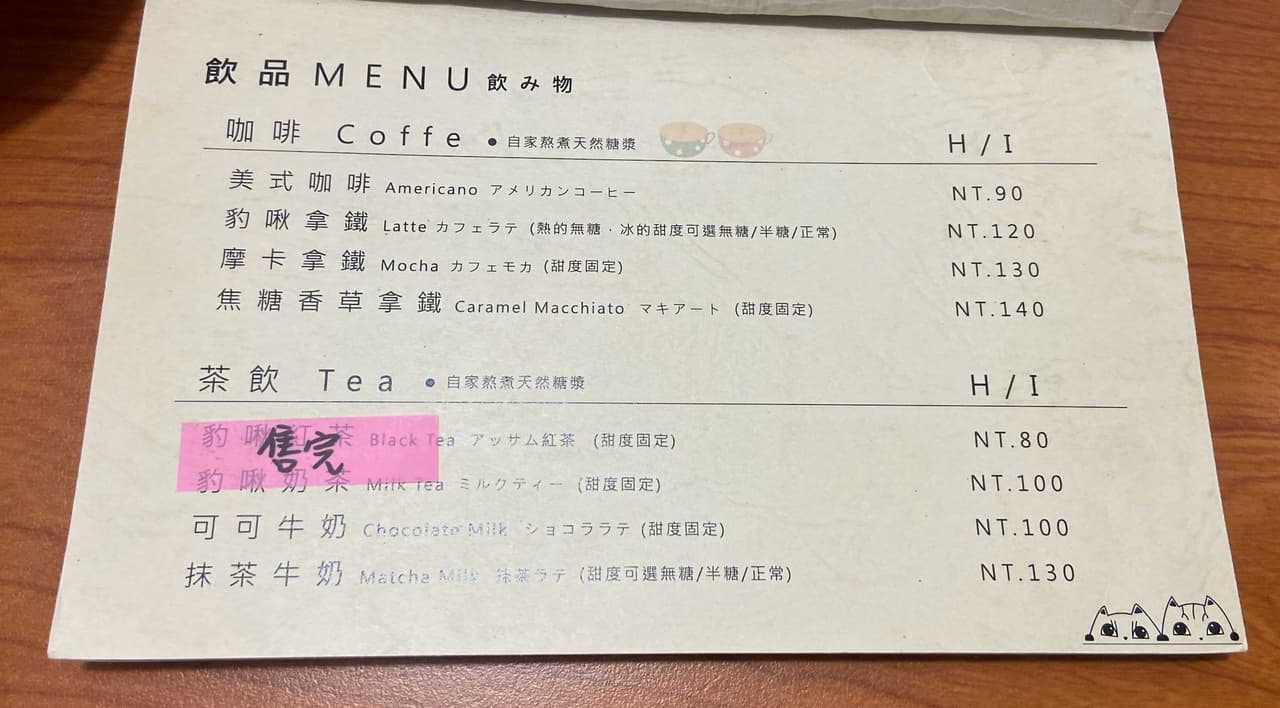 飲品MENU飲み物
咖啡 Coffe ●自家熬煮天然糖漿 H/I
美式咖啡 Americano アメリカンコーヒー NT.90
豹啾拿鐵 Latte カフェラテ (熱的無糖・冰的甜度可選無糖/半糖/正常) NT.120
摩卡拿鐵 Mocha カフェモカ (甜度固定) NT.130
焦糖香草拿鐵 Caramel Macchiato マキアート (甜度固定) NT.140
茶飲 Tea ●自家熬煮天然糖漿 H/I
豹啾紅茶 Black Tea アッサム紅茶 (甜度固定) NT.80
售完
豹啾奶茶 Milk Tea ミルクティー (甜度固定) NT.100
可可牛奶 Chocolate Milk ショコララテ (甜度固定) NT.100
抹茶牛奶 Matcha Milk 抹茶ラテ (甜度可選無糖/半糖/正常) NT.130